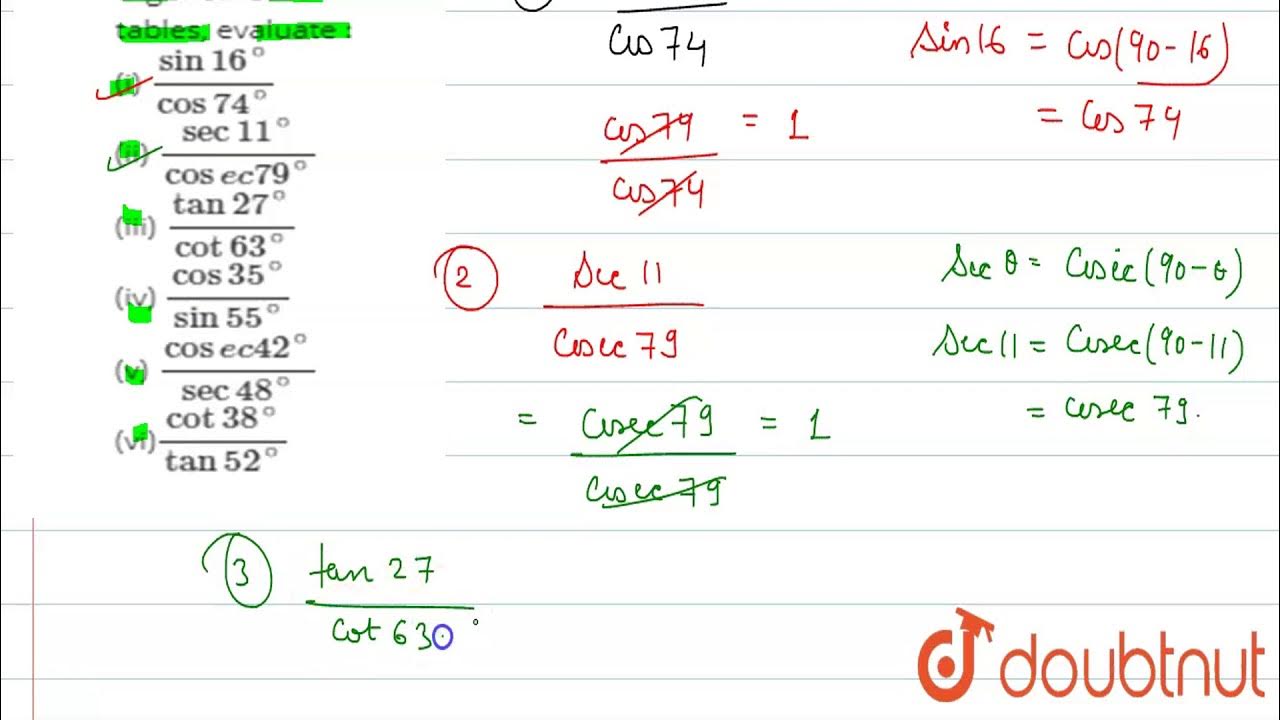 tables, evaluate :
(i) sin 16° / cos 74°
(ii) sec 11° / cos ec79°
(iii) tan 27° / cot 63°
(iv) cos 35° / sin 55°
(v) cos ec42° / sec 48°
(vi) cot 38° / tan 52°
cos 74
cos 74 / cos 74 = 1
sin 16 = cos(90-16)
= cos 74
2 sec 11 / cosec 79
= cosec 79 / cosec 79 = 1
sec θ = cosec(90-θ)
sec 11 = cosec(90-11)
= cosec 79.
3 tan 27 / cot 63°
doubtnut